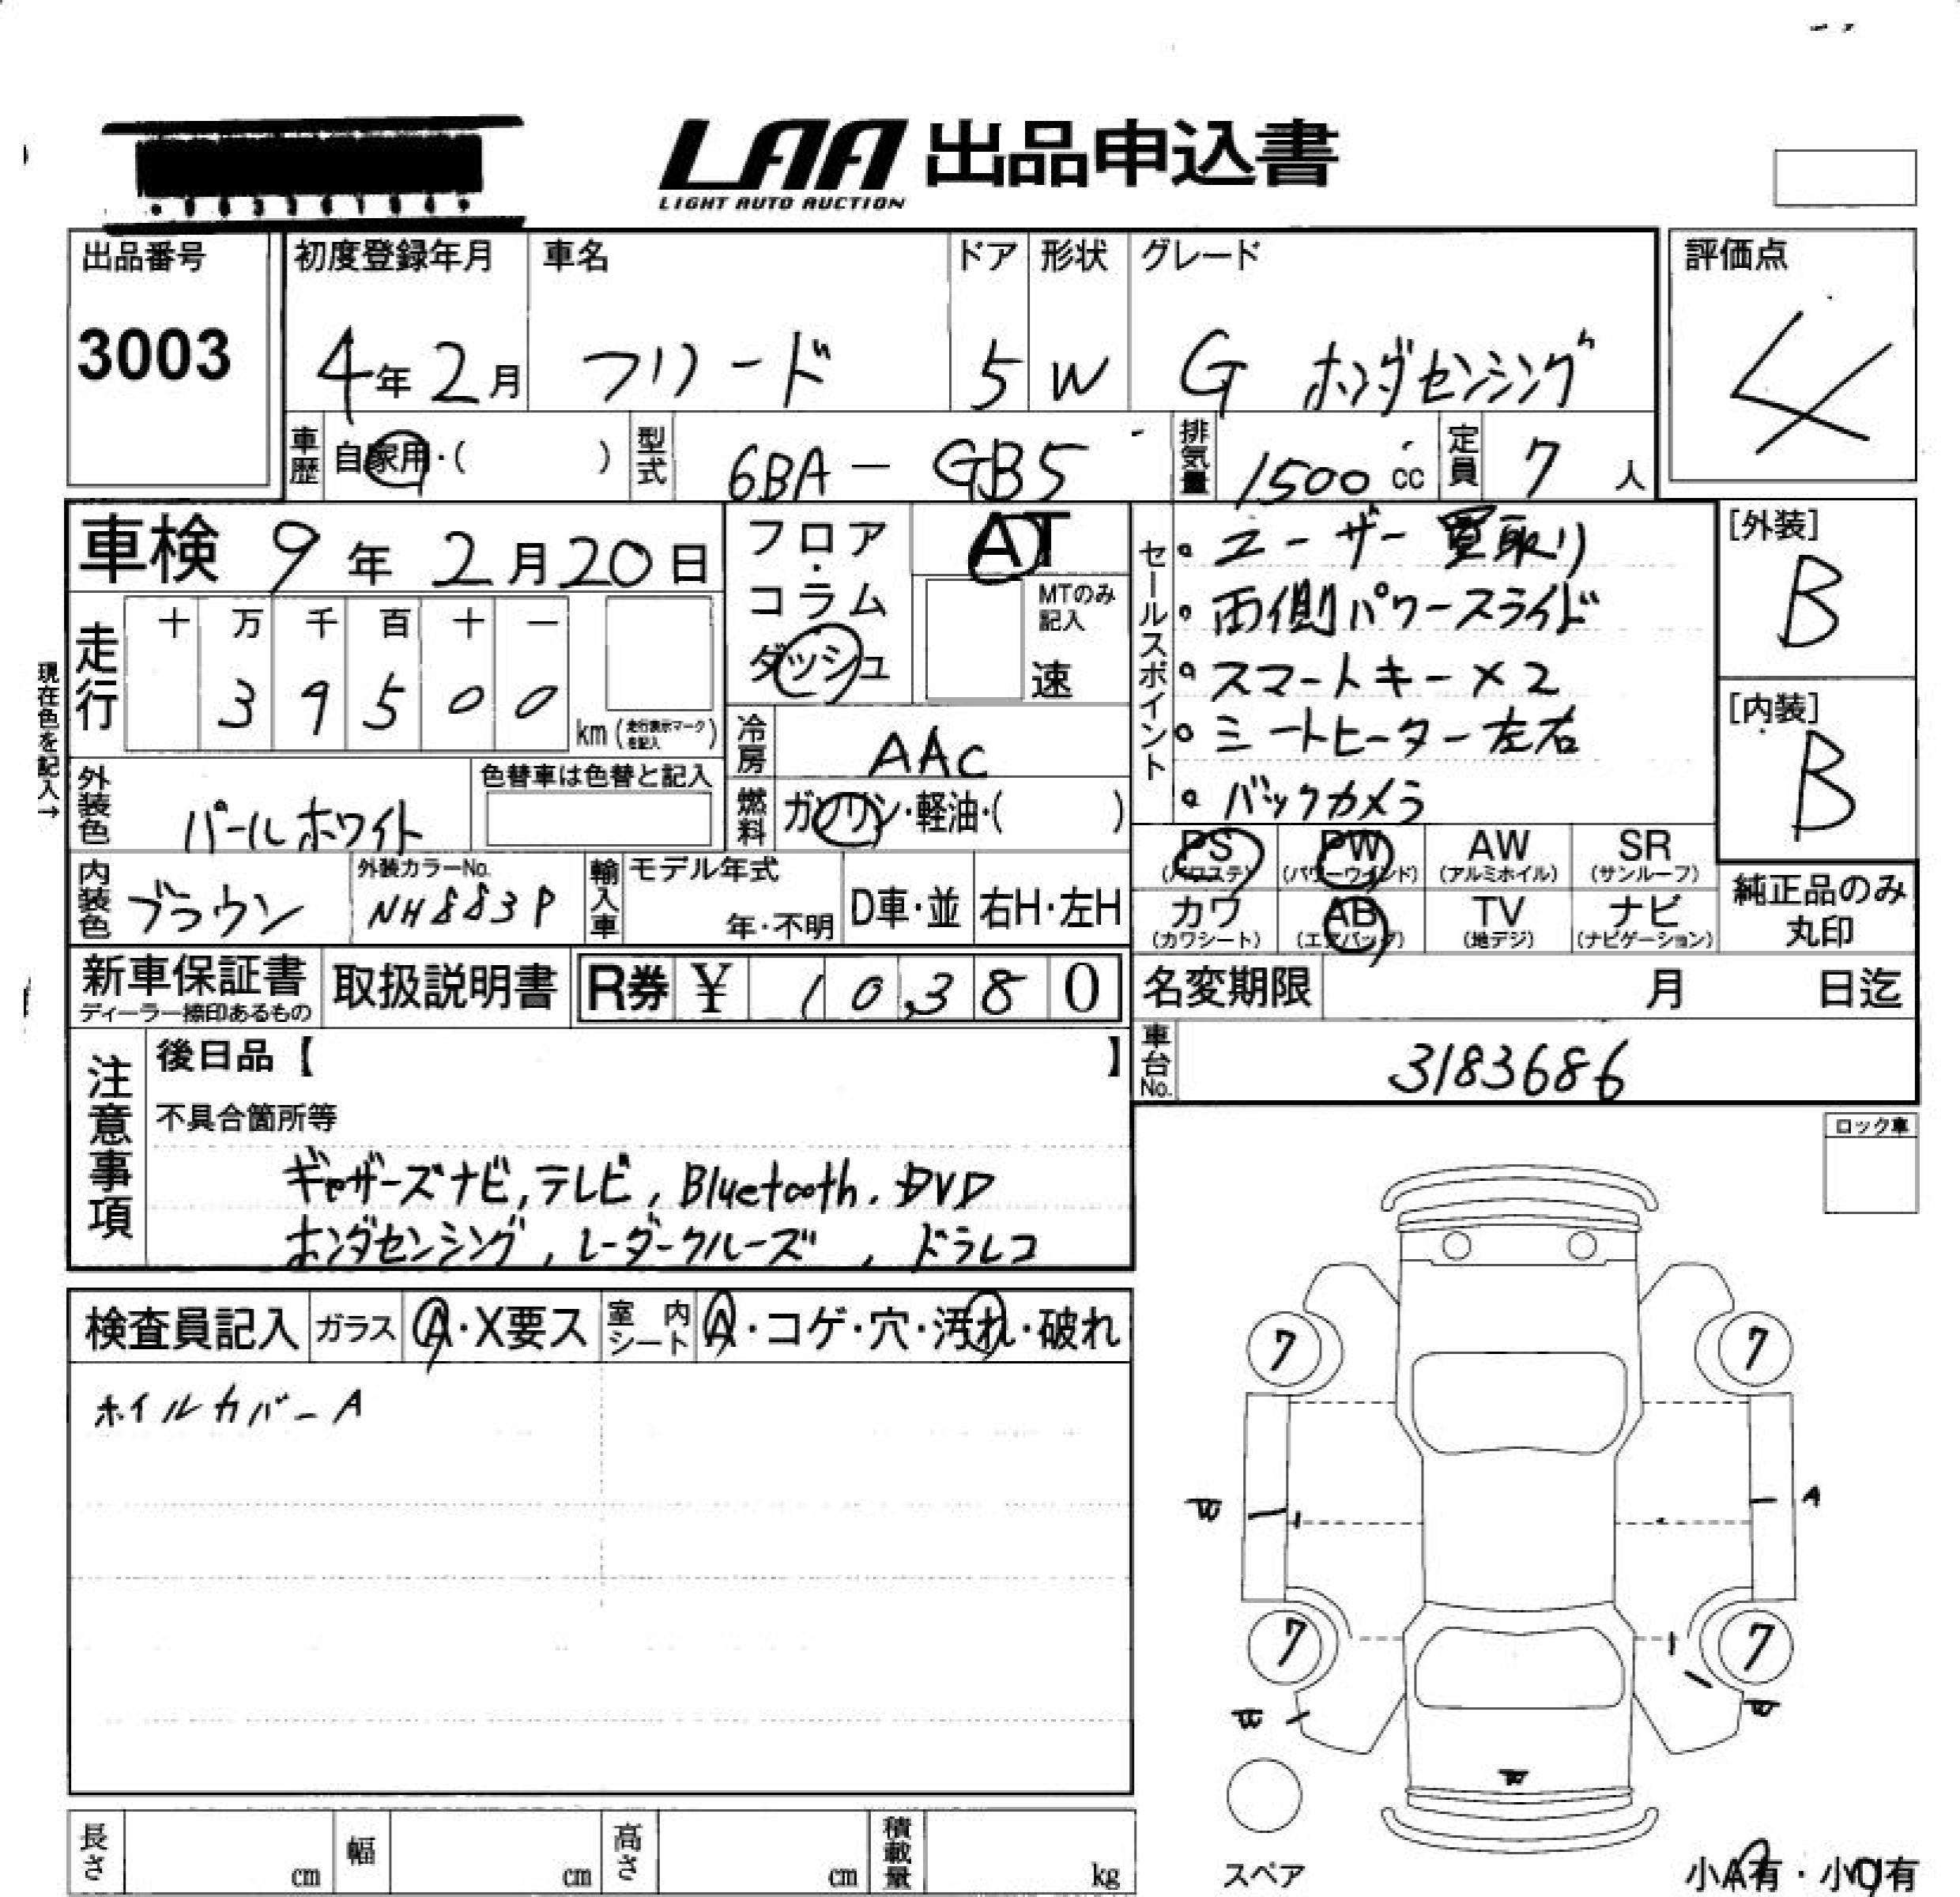 LAA 出品申込書
LIGHT AUTO AUCTION
出品番号
3003
初度登録年月
4年2月
車名
フリード
ドア
5
形状
W
グレード
G ホンダセンシング
評価点
4
車歴 自家用・( )
型式 6BA-GB5
排気量 1500 cc
定員 7 人
車検 9年2月20日
走行
十 万 千 百 十 一
3 9 5 0 0
km (走行表示マークを記入)
現在色を記入→
フロア・コラム・ダッシュ
AT
MTのみ記入
速
冷房 AAC
燃料 ガソリン・軽油・( )
セールスポイント
・ユーザー買取り
・両側パワースライド
・スマートキー×2
・シートヒーター左右
・バックカメラ
[外装]
B
[内装]
B
外装色 パールホワイト
色替車は色替と記入
内装色 ブラウン
外装カラーNo.
NH883P
輸入車
モデル年式
年・不明
D車・並
右H・左H
PS (パワステ)
PW (パワーウインド)
AW (アルミホイル)
SR (サンルーフ)
カワ (カワシート)
AB (エアバッグ)
TV (地デジ)
ナビ (ナビゲーション)
純正品のみ
丸印
新車保証書
ディーラー捺印あるもの
取扱説明書
R券 ¥ 10,380
名変期限 月 日迄
車台No. 3183686
注意事項
後日品【 】
不具合箇所等
ギャザーズナビ, テレビ, Bluetooth, DVD
ホンダセンシング, レーダークルーズ, ドラレコ
ロック車
検査員記入
ガラス A・X要ス
室内シート A・コゲ・穴・汚れ・破れ
ホイルカバーA
7
7
W
A
7
7
W
W
W
スペア
小A有・小U有
長さ cm
幅 cm
高さ cm
積載量 kg